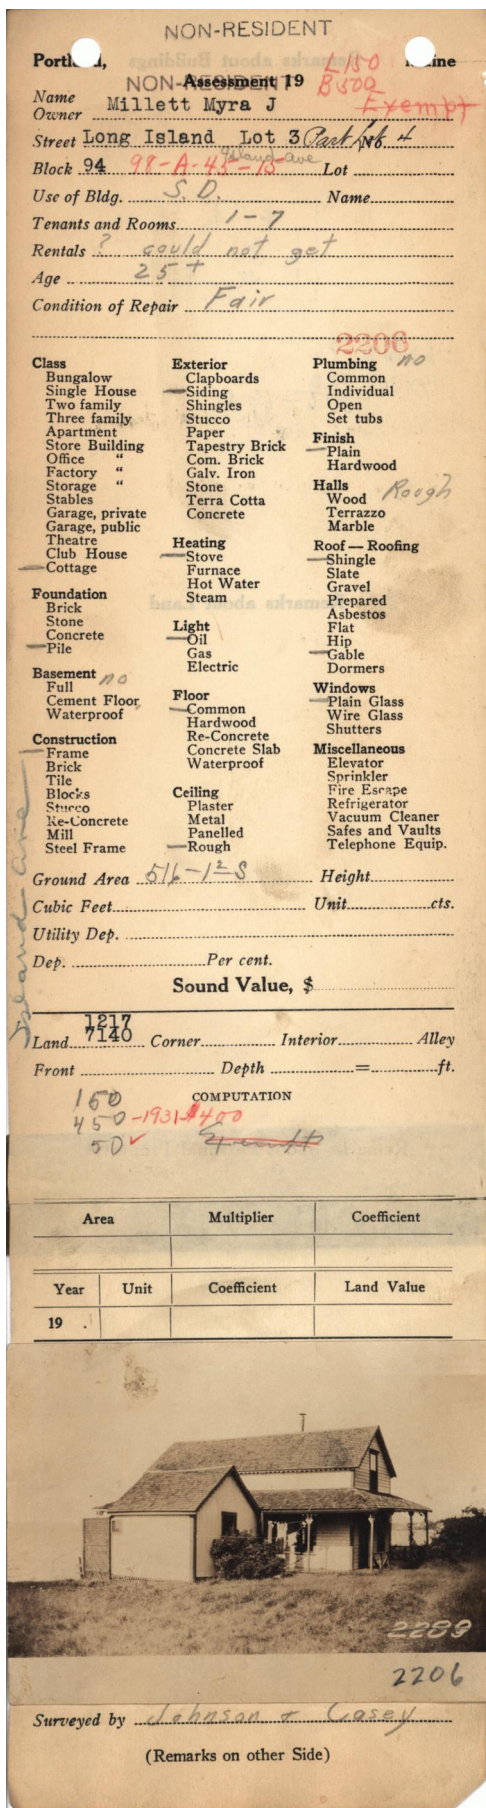 NON-RESIDENT
Portland, Maine
NON-RESIDENT
Assessment 19
L150
B500
Exempt
Name Owner Millett Myra J
Street Long Island Lot 3 Part Lot 4 No.
Island Ave
Block 94 98-A-45-15 Lot
Use of Bldg. S. D. Name
Tenants and Rooms 1-7
Rentals ? could not get
Age 25+
Condition of Repair Fair
2206
Class
Bungalow
Single House
Two family
Three family
Apartment
Store Building
Office "
Factory "
Storage "
Stables
Garage, private
Garage, public
Theatre
Club House
Cottage
Foundation
Brick
Stone
Concrete
Pile
Basement no
Full
Cement Floor
Waterproof
Construction
Frame
Brick
Tile
Blocks
Stucco
Re-Concrete
Mill
Steel Frame
Exterior
Clapboards
Siding
Shingles
Stucco
Paper
Tapestry Brick
Com. Brick
Galv. Iron
Stone
Terra Cotta
Concrete
Heating
Stove
Furnace
Hot Water
Steam
Light
Oil
Gas
Electric
Floor
Common
Hardwood
Re-Concrete
Concrete Slab
Waterproof
Ceiling
Plaster
Metal
Panelled
Rough
Plumbing no
Common
Individual
Open
Set tubs
Finish
Plain
Hardwood
Halls
Wood Rough
Terrazzo
Marble
Roof — Roofing
Shingle
Slate
Gravel
Prepared
Asbestos
Flat
Hip
Gable
Dormers
Windows
Plain Glass
Wire Glass
Shutters
Miscellaneous
Elevator
Sprinkler
Fire Escape
Refrigerator
Vacuum Cleaner
Safes and Vaults
Telephone Equip.
Island Ave
Ground Area 516-1 2 S Height
Cubic Feet Unit cts.
Utility Dep.
Dep. Per cent.
Sound Value, $
1217
Land 7140 Corner Interior Alley
Front Depth = ft.
COMPUTATION
150
450 -1931-$400
50 ✓ Exempt
Area Multiplier Coefficient
Year Unit Coefficient Land Value
19 .
2289
2206
Surveyed by Johnson + Casey
(Remarks on other Side)